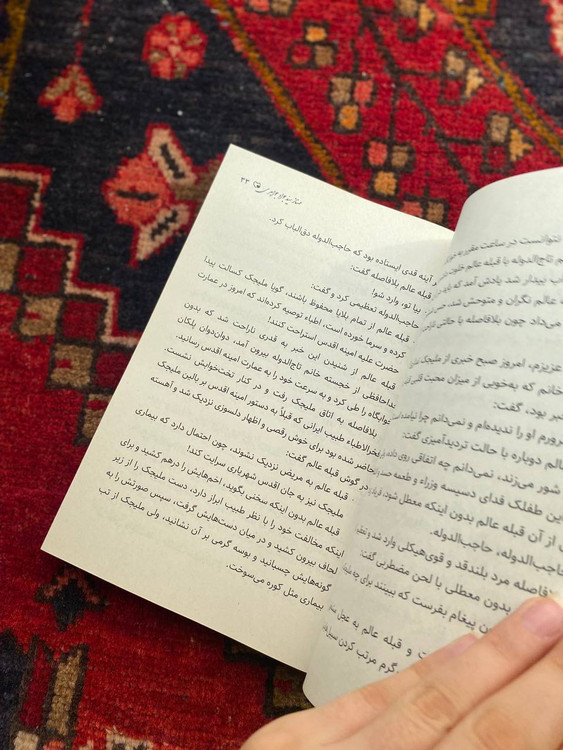 توانست در ساعت مقرر به
تاج‌الدوله با قبله عالم خلوت
بیدار شد یادش آمد که
عالم نگران و متوحش شد،
می‌داد چون بلافاصله با حالتی
عزیزم، امروز صبح خبری از ملیجک
خانم که به‌خوبی از میزان محبت قلبی
بود، گفت:
او را ندیده‌ام و نمی‌دانم چرا نیامده است
عالم دوباره با حالت تردیدآمیزی گفت:
شور می‌زند، نمی‌دانم چه اتفاقی روی داده
این طفلک فدای دسیسه وزراء و طعمه
از آن قبله عالم بدون اینکه معطل شود،
حاجب‌الدوله، حاجب‌الدوله.
فاصله مرد بلندقد و قوی‌هیکلی وارد شد و
بدون معطلی با لحن مضطربی گفت:
پیغام بفرست که ببینند برای چه
و قبله عالم به عجله
گرم مرتب کردن
۳۳
آینه قدی ایستاده بود که حاجب‌الدوله دق‌الباب کرد.
قبله عالم بلافاصله گفت:
بیا تو، وارد شو!
حاجب‌الدوله تعظیمی کرد و گفت:
قبله عالم از تمام بلایا محفوظ باشند، گویا ملیجک کسالت پیدا
کرده و سرما خورده است، اطباء توصیه کرده‌اند که امروز در عمارت
حضرت علیه امینه اقدس استراحت کنند!
قبله عالم از شنیدن این خبر به قدری ناراحت شد که بدون
خداحافظی از خجسته خانم تاج‌الدوله بیرون آمد، دوان‌دوان پلکان
خوابگاه را طی کرد و به سرعت خود را به عمارت امینه اقدس رسانید.
بلافاصله به اتاق ملیجک رفت و در کنار تختخوابش نشست.
فخرالاطباء طبیب ایرانی که قبلاً به دستور امینه اقدس بر بالین ملیجک
حاضر شده بود برای خوش رقصی و اظهار دلسوزی نزدیک شد و آهسته
در گوش قبله عالم گفت:
قبله عالم به مریض نزدیک نشوند، چون احتمال دارد که بیماری
ملیجک نیز به جان اقدس شهریاری سرایت کند!
قبله عالم بدون اینکه سخنی بگوید، اخم‌هایش را درهم کشید و برای
اینکه مخالفت خود را با نظر طبیب ابراز دارد، دست ملیجک را از زیر
لحاف بیرون کشید و در میان دست‌هایش گرفت، سپس صورتش را به
گونه‌هایش چسبانید و بوسه گرمی بر آن نشانید، ولی ملیجک از تب
بیماری مثل کوره می‌سوخت.